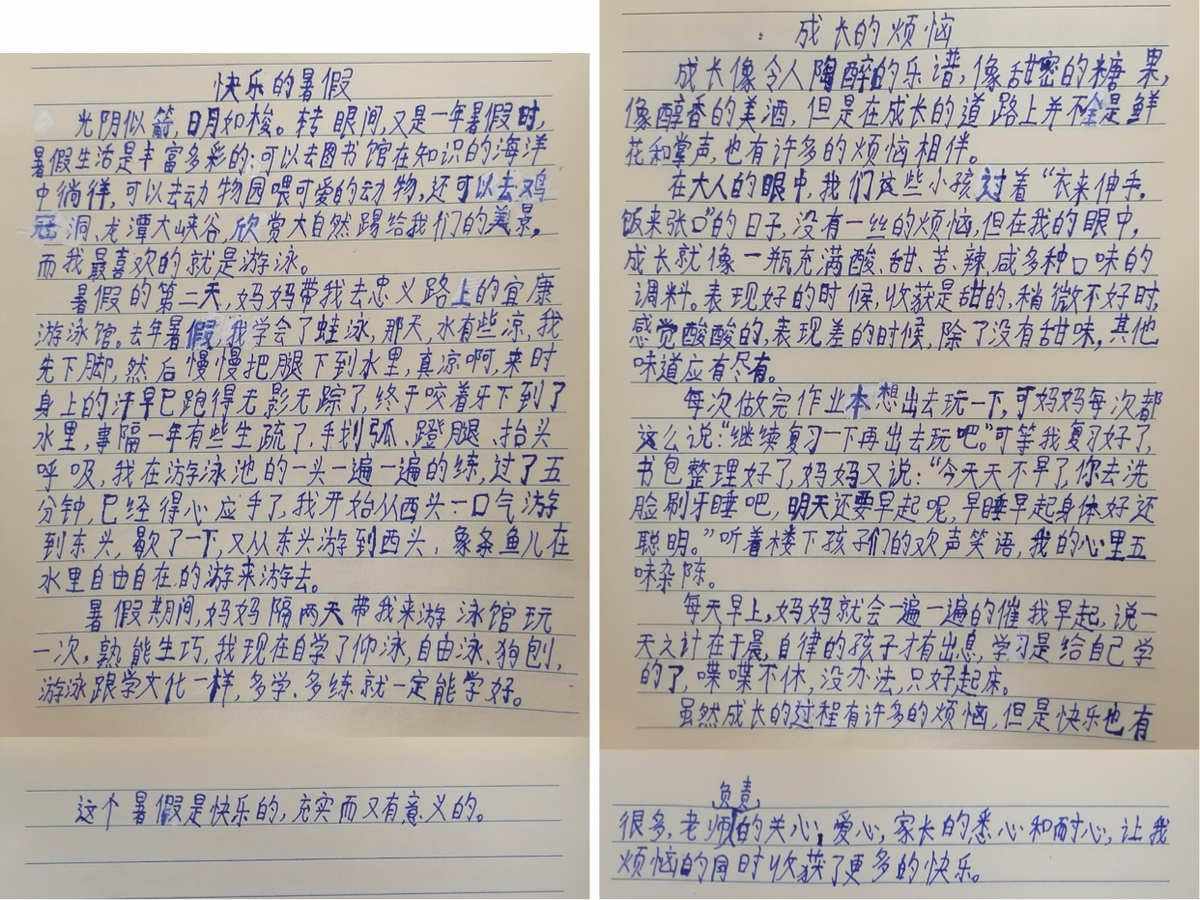 快乐的暑假
光阴似箭,日月如梭。转眼间,又是一年暑假时,
暑假生活是丰富多彩的:可以去图书馆在知识的海洋
中徜徉,可以去动物园喂可爱的动物,还可以去鸡
冠洞、龙潭大峡谷,欣赏大自然踢给我们的美景,
而我最喜欢的就是游泳。
暑假的第二天,妈妈带我去忠义路上的宜康
游泳馆。去年暑假,我学会了蛙泳,那天,水有些凉,我
先下脚,然后慢慢把腿下到水里,真凉啊,来时
身上的汗早已跑得无影无踪了,终于咬着牙下到了
水里,事隔一年有些生疏了,手划弧、蹬腿、抬头
呼吸,我在游泳池的一头一遍一遍的练,过了五
分钟,已经得心应手了,我开始从西头一口气游
到东头,歇了一下,又从东头游到西头,象条鱼儿在
水里自由自在的游来游去。
暑假期间,妈妈隔两天带我来游泳馆玩
一次,熟能生巧,我现在自学了仰泳,自由泳、狗刨,
游泳跟学文化一样,多学、多练就一定能学好。
这个暑假是快乐的,充实而又有意义的。
成长的烦恼
成长像令人陶醉的乐谱,像甜密的糖果,
像醇香的美酒,但是在成长的道路上并不全是鲜
花和掌声,也有许多的烦恼相伴。
在大人的眼中,我们这些小孩过着“衣来伸手,
饭来张口”的日子,没有一丝的烦恼,但在我的眼中,
成长就像一瓶充满酸、甜、苦、辣、咸多种口味的
调料。表现好的时候,收获是甜的,稍微不好时,
感觉酸酸的,表现差的时候,除了没有甜味,其他
味道应有尽有。
每次做完作业本想出去玩一下,可妈妈每次都
这么说:“继续复习一下再出去玩吧。”可等我复习好了,
书包整理好了,妈妈又说:“今天天不早了,你去洗
脸刷牙睡吧,明天还要早起呢,早睡早起身体好还
聪明。”听着楼下孩子们的欢声笑语,我的心里五
味杂陈。
每天早上,妈妈就会一遍一遍的催我早起,说一
天之计在于晨,自律的孩子才有出息,学习是给自己学
的了,喋喋不休,没办法,只好起床。
虽然成长的过程有许多的烦恼,但是快乐也有
负责,
很多,老师的关心,爱心,家长的悉心和耐心,让我
烦恼的同时收获了更多的快乐。